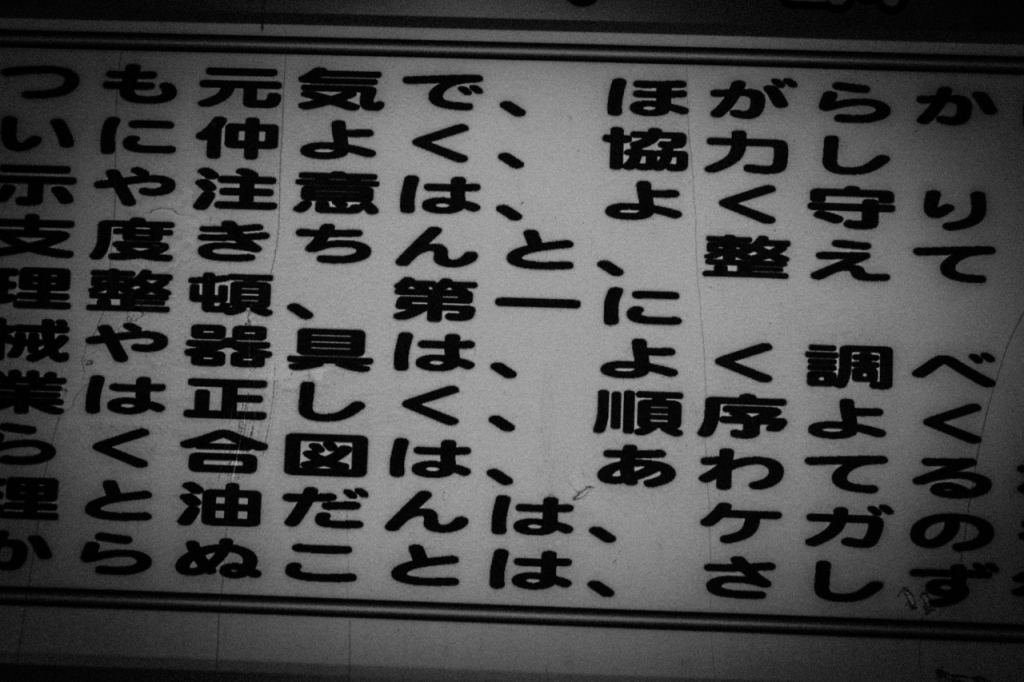 つも元気で、ほがらか
いに仲よく、協力し
示や注意は、よく守り
支度きちんと、整えて
理整頓、第一に
械や器具は、よく調べ
業は正しく、順序よく
らく合図は、あわてる
理と油だんは、ケガの
からぬことは、さしず